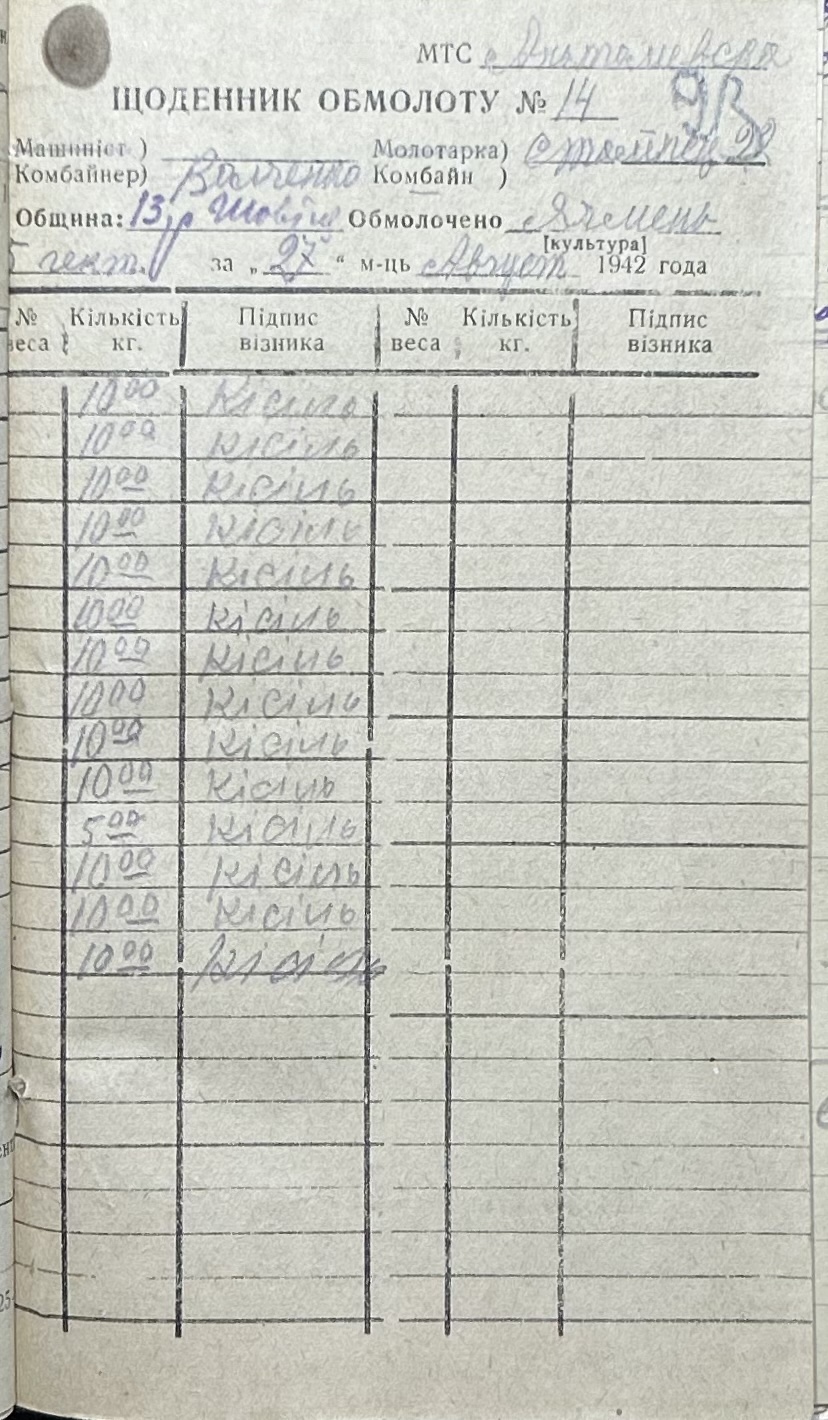 МТС
ЩОДЕННИК ОБМОЛОТУ № 14
Машиніст ) Молотарка)
Комбайнер) Комбайн )
Община: 13 Обмолочено Ячмень
[культура]
5 гект. за „ 27 “ м-ць Август 1942 года
№ веса Кількість кг. Підпис візника № веса Кількість кг. Підпис візника
10 00 Кісіль
10 00 Кісіль
10 00 Кісіль
10 00 Кісіль
10 00 Кісіль
10 00 Кісіль
10 00 Кісіль
10 00 Кісіль
10 00 Кісіль
10 00 Кісіль
5 00 Кісіль
10 00 Кісіль
10 00 Кісіль
10 00 Кісіль